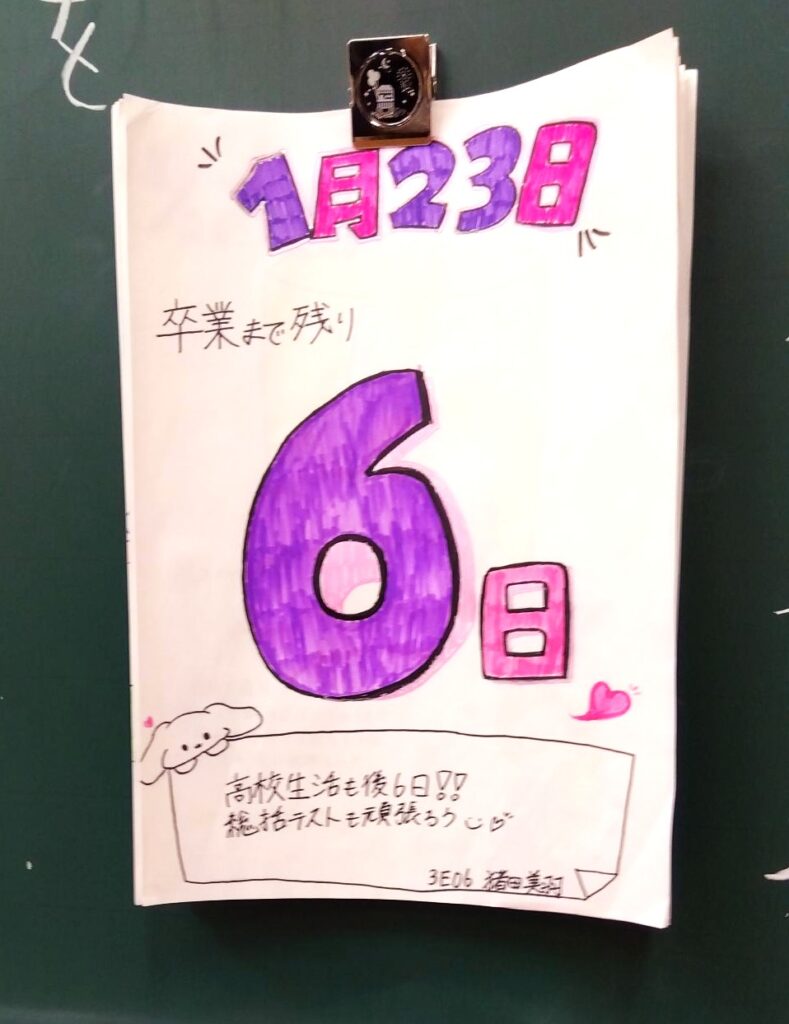 1月23日
卒業まで残り
6日
高校生活も後6日!!
総括テストも頑張ろう
3E06 猪田美羽